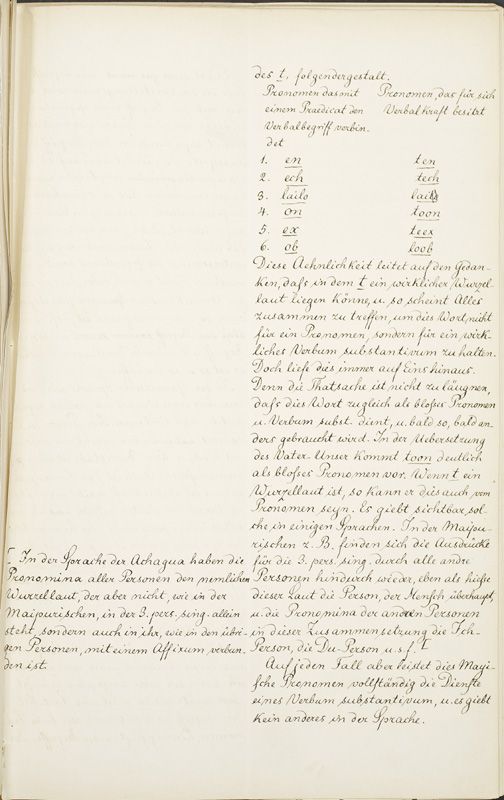 des t, folgendergestalt.
Pronomen das mit Pronomen, das für sich
einem Praedicat den Verbalkraft besitzt
Verbalbegriff verbin-
det
1. en ten
2. ech tech
3. laílo laílo
4. on toon
5. ex teex
6. ob loob
Diese Aehnlichkeit leitet auf den Gedan-
ken, daſs in dem t ein wirklicher Wurzel-
laut liegen könne, u. so scheint Alles
zusammen zu treffen, um dies Wort, nicht
für ein Pronomen, sondern für ein wirk-
liches Verbum substantivum zu halten.
Doch liefe dies immer auf Eins hinaus.
Denn die Thatsache ist nicht zu läugnen,
daſs dies Wort zugleich als bloſses Pronomen
u. Verbum subst. dient, u. bald so, bald an-
ders gebraucht wird. In der Uebersetzung
des Vater-Unser kommt toon deutlich
als bloſses Pronomen vor. Wenn t ein
Wurzellaut ist, so kann er dies auch vom
Pronomen seyn. Es giebt sichtbar sol-
che in einigen Sprachen. In der Maipu-
rischen z. B. finden sich die Ausdrücke
für die 3. pers. sing. durch alle andre
Personen hindurch wieder, eben als hieſse
dieser Laut die Person, der Mensch überhaupt,
u. die Pronomina der andren Personen
in dieser Zusammensetzung die Ich-
Person, die Du-Person u. s. f. Γ
Auf jeden Fall aber leistet dies Mayi-
sche Pronomen vollständig die Dienste
eines Verbum substantivum, u. es giebt
kein anderes in der Sprache.
Γ In der Sprache der Achagua haben die
Pronomina aller Personen den nemlichen
Wurzellaut, der aber nicht, wie in der
Maipurischen, in der 3. pers. sing. allein
steht, sondern auch in ihr, wie in den übri-
gen Personen, mit einem Affixum verbun-
den ist.